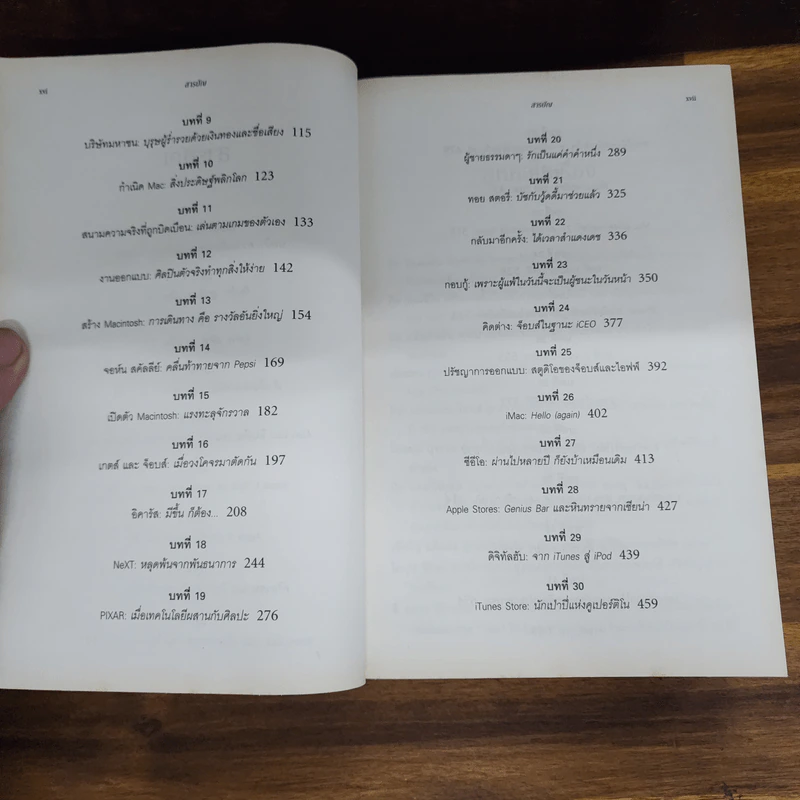 สารบัญ
บทที่ 9
บริษัทมหาชน: บุรุษผู้ร่ำรวยด้วยเงินทองและชื่อเสียง 115
บทที่ 10
กำเนิด Mac: สิ่งประดิษฐ์พลิกโลก 123
บทที่ 11
สนามความจริงที่ถูกบิดเบือน: เล่นตามเกมของตัวเอง 133
บทที่ 12
งานออกแบบ: ศิลปินตัวจริงทำทุกสิ่งให้ง่าย 142
บทที่ 13
สร้าง Macintosh: การเดินทาง คือ รางวัลอันยิ่งใหญ่ 154
บทที่ 14
จอห์น สคัลลีย์: คลื่นท้าทายจาก Pepsi 169
บทที่ 15
เปิดตัว Macintosh: แรงทะลุจักรวาล 182
บทที่ 16
เกตส์ และ จ็อบส์: เมื่อวงโคจรมาตัดกัน 197
บทที่ 17
อิคารัส: มีขึ้น ก็ต้อง... 208
บทที่ 18
NeXT: หลุดพ้นจากพันธนาการ 244
บทที่ 19
PIXAR: เมื่อเทคโนโลยีผสานกับศิลปะ 276
สารบัญ
บทที่ 20
ผู้ชายธรรมดาๆ: รักเป็นแค่คำคำหนึ่ง 289
บทที่ 21
ทอย สตอรี่: บัซกับวู้ดดี้มาช่วยแล้ว 325
บทที่ 22
กลับมาอีกครั้ง: ได้เวลาสำแดงเดช 336
บทที่ 23
กอบกู้: เพราะผู้แพ้ในวันนี้จะเป็นผู้ชนะในวันหน้า 350
บทที่ 24
คิดต่าง: จ็อบส์ในฐานะ iCEO 377
บทที่ 25
ปรัชญาการออกแบบ: สตูดิโอของจ็อบส์และไอฟฟ์ 392
บทที่ 26
iMac: Hello (again) 402
บทที่ 27
ซีอีโอ: ผ่านไปหลายปี ก็ยังบ้าเหมือนเดิม 413
บทที่ 28
Apple Stores: Genius Bar และหินทรายจากเซียน่า 427
บทที่ 29
ดิจิทัลฮับ: จาก iTunes สู่ iPod 439
บทที่ 30
iTunes Store: นักเป่าปี่แห่งคูเปอร์ติโน 459